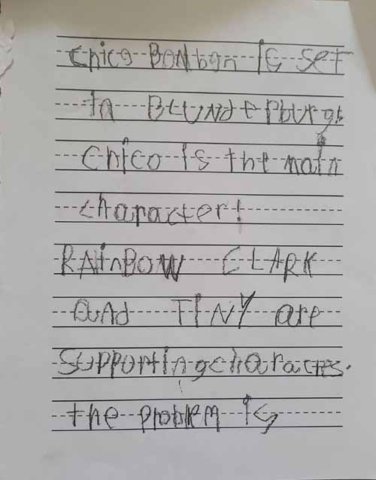 chico BoNbon is set
in BLUNdepburg.
Chico is the main
character!
RAinBOW CLARK
and TiNY are
supporting characters.
the problem is